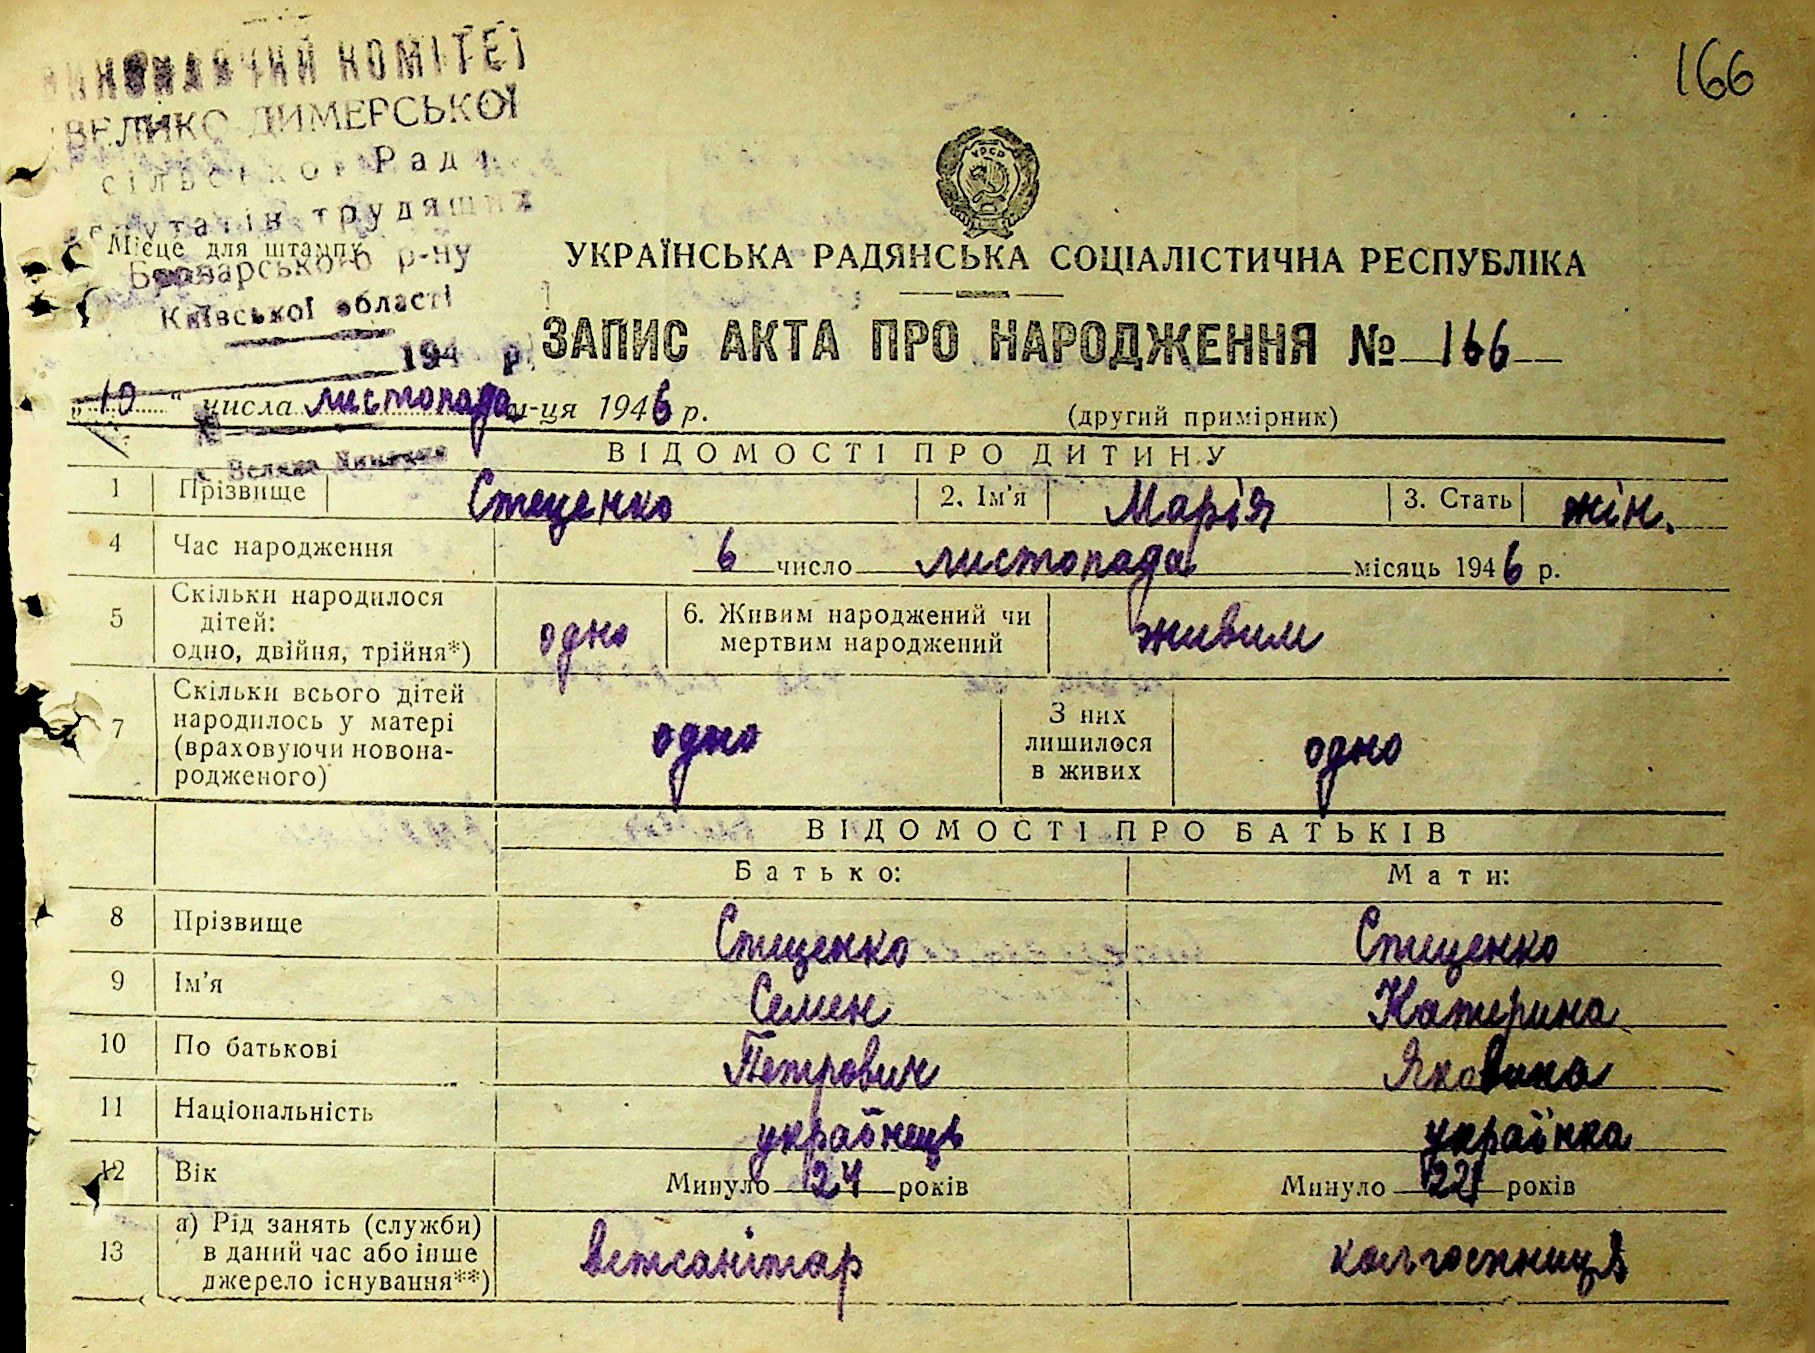 166
ВИКОНАВЧИЙ КОМІТЕТ
ВЕЛИКО-ДИМЕРСЬКОЇ
сільської Ради
депутатів трудящих
Місце для штампу
Броварського р-ну
Київської області
194 р.
УРСР
УКРАЇНСЬКА РАДЯНСЬКА СОЦІАЛІСТИЧНА РЕСПУБЛІКА
ЗАПИС АКТА ПРО НАРОДЖЕННЯ № 166
„10“ числа листопада м-ця 1946 р.
(другий примірник)
с. Велика Димерка
ВІДОМОСТІ ПРО ДИТИНУ
1 Прізвище Стеценко 2. Ім'я Марія 3. Стать жін.
4 Час народження 6 число листопада місяць 1946 р.
5 Скільки народилося
дітей:
одно, двійня, трійня*) одно 6. Живим народжений чи
мертвим народжений живим
7 Скільки всього дітей
народилось у матері
(враховуючи новона-
родженого) одно З них
лишилося
в живих одно
ВІДОМОСТІ ПРО БАТЬКІВ
Батько: Мати:
8 Прізвище Стеценко Стеценко
9 Ім'я Семен Катерина
10 По батькові Петрович Яковина
11 Національність українець українка
12 Вік Минуло 24 років Минуло 22 років
13 а) Рід занять (служби)
в даний час або інше
джерело існування**) ветсанітар колгоспниця